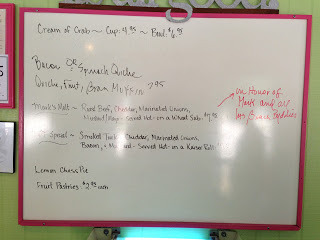 Cream of Crab ~ Cup: 4.95 ~ Bowl: $6.95
Bacon OR Spinach Quiche
Quiche, Fruit, Bran Muffin 7.95
Melt ~ Roast Beef, Cheddar, Marinated Onions,
Served Hot on a Wheat Sub $7.95
Special ~ Smoked Turkey, Cheddar, Marinated Onions,
Bacon, & Mustard - Served Hot on a Kaiser Roll
Lemon Chess Pie
Fruit Pastries $2.95 each
in Honor of
Mark and all
his Beach Buddies